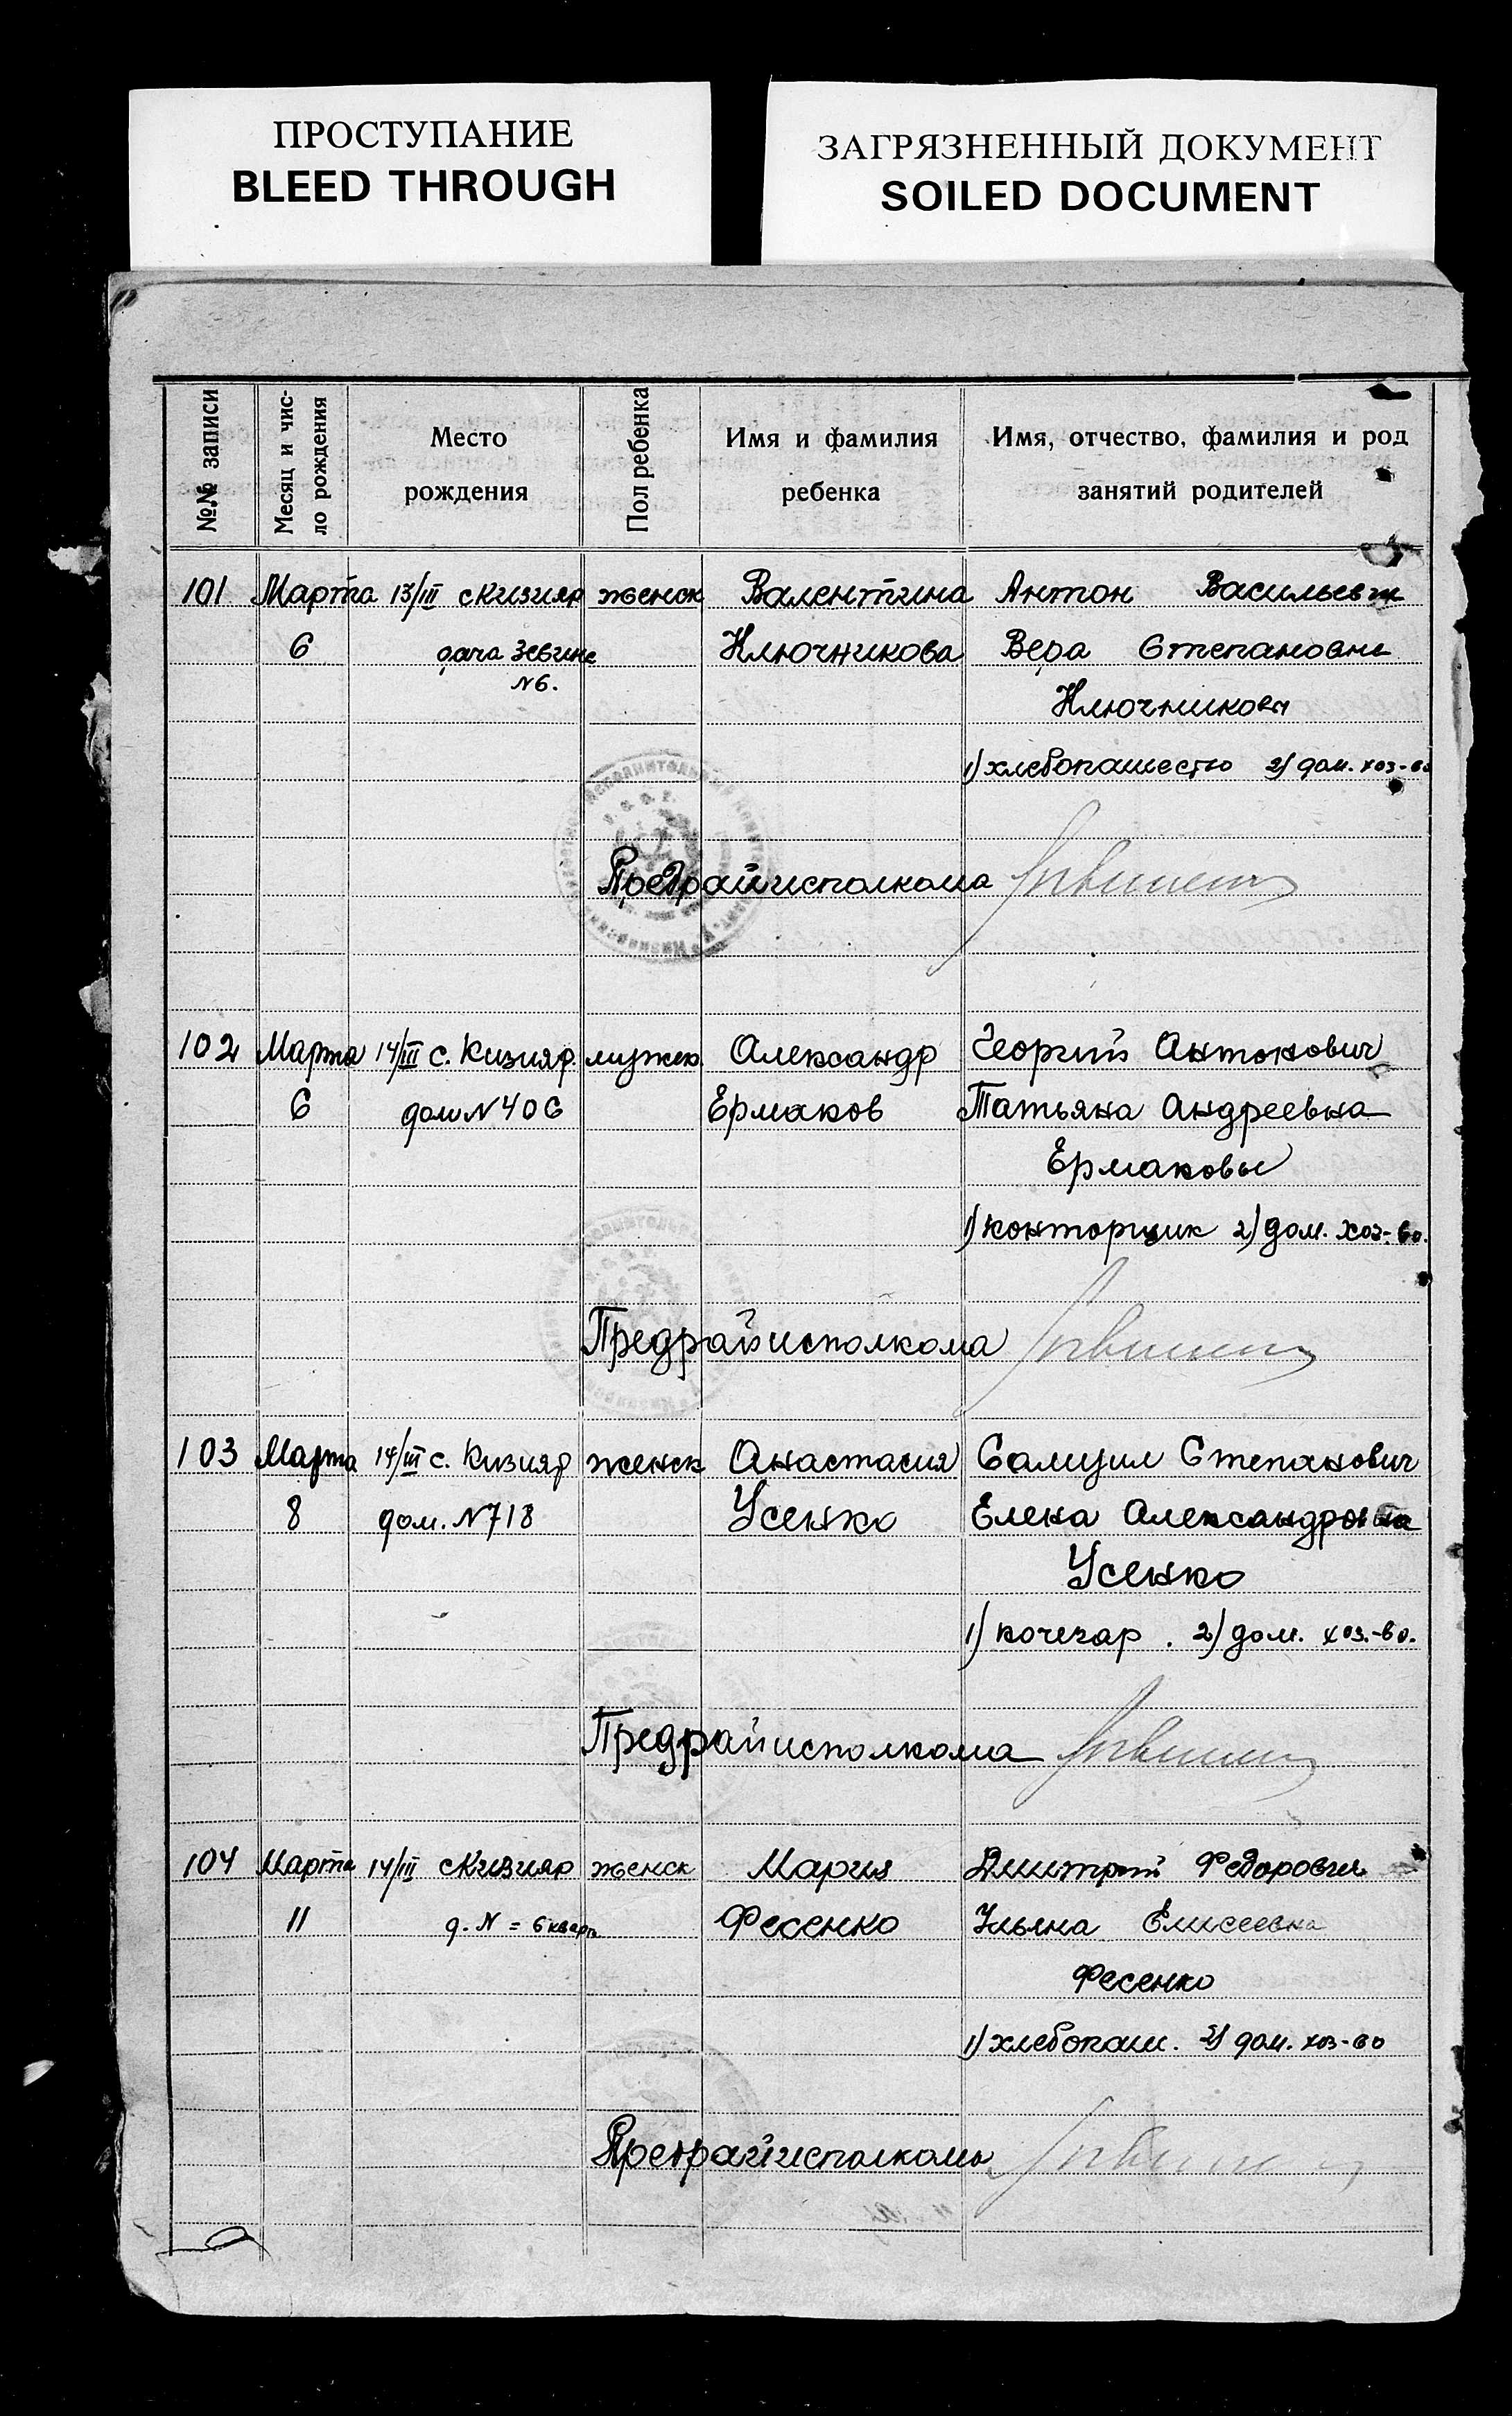 ПРОСТУПАНИЕ
BLEED THROUGH
ЗАГРЯЗНЕННЫЙ ДОКУМЕНТ
SOILED DOCUMENT
№№ записи
Месяц и чис-
ло рождения
Место
рождения
Пол ребенка
Имя и фамилия
ребенка
Имя, отчество, фамилия и род
занятий родителей
101 Марта 13/III с Кизияр женск Валентина Антон Васильевич
6 дача Ключникова Вера Степановна
N6.
Ключниковы
1) хлебопашество 2) дом. хоз-во
Предрайисполкома
102 Марта 14/III с. Кизияр. мужск. Александр Георгий Антонович
6 дом N 406 Ермаков Татьяна Андреевна
Ермаковы
1) конторщик 2) дом. хоз-во.
Предрайисполкома
103 Марта 14/III с. Кизияр женск Анастасия Самуил Степанович
8 дом. N 718 Усенко Елена Александровна
Усенко
1) кочегар. 2) дом. хоз.-во.
Предрайисполкома
104 Марта 14/III с Кизияр женск Мария Дмитрий Федорович
11 д. N = 6 кварт Фесенко Ульяна Елисеевна
Фесенко
1) хлебопаш. 2) дом. хоз-во
Предрайисполкома